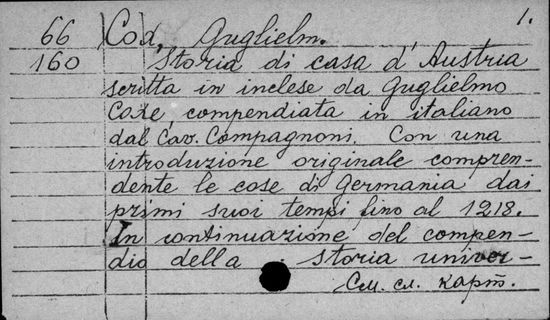 1.
66 Cod, Guglielm.
160 Storia di casa d'Austria
scritta in inclese da Guglielmo
Coxe, compendiata in italiano
dal Cav. Compagnoni. Con una
introduzione originale compren-
dente le cose di Germania dai
primi suoi tempi fino al 1218.
In continuazione del compen-
dio della storia univer-
См. сл. карт.